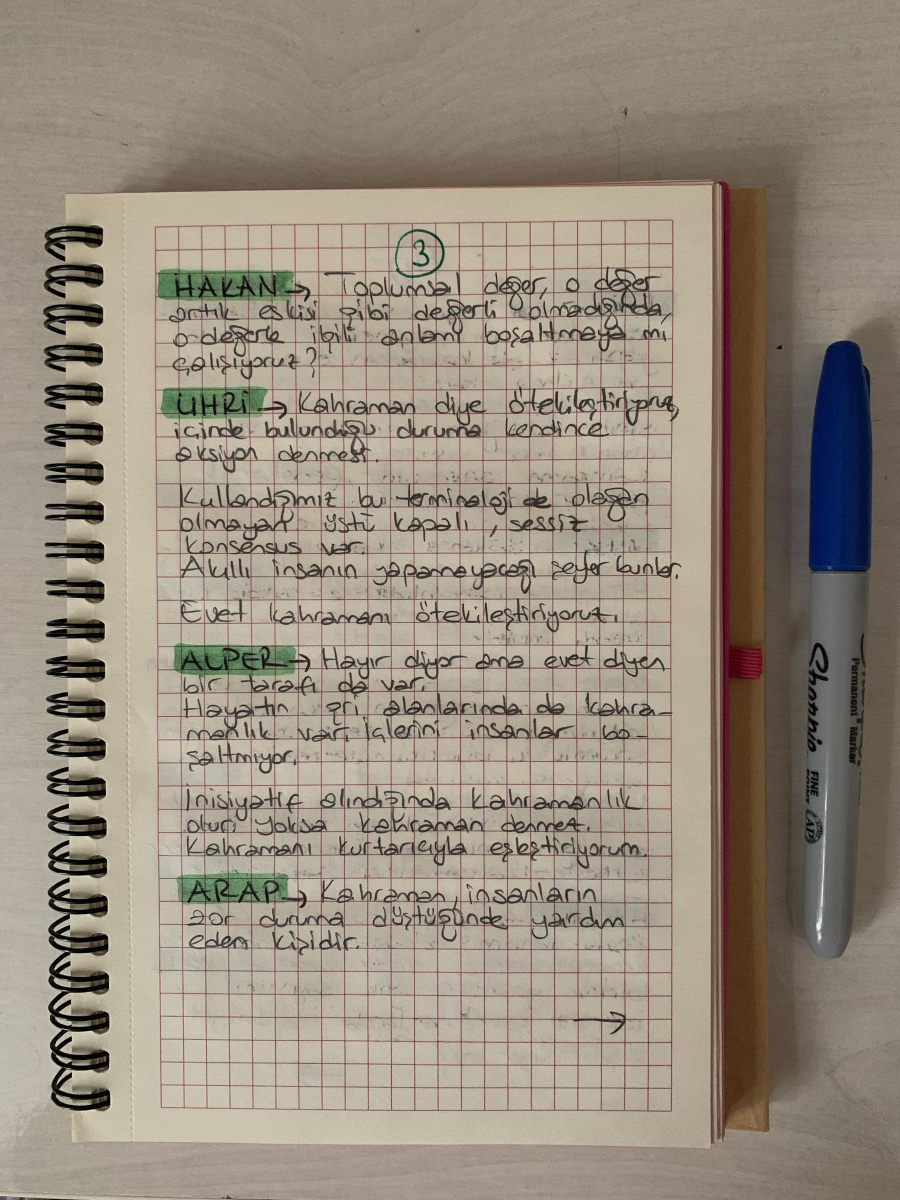 3
HAKAN → Toplumsal değer, o değer
artık eskisi gibi değerli olmadığında,
o değerle ilgili anlamı boşaltmaya mı
çalışıyoruz?
UHRİ → Kahraman diye ötekileştiriyoruz,
içinde bulunduğu duruma kendince
aksiyon denmesi.
Kullandığımız bu terminoloji de olağan
olmayan üstü kapalı, sessiz
konsensus var.
Akıllı insanın yapamayacağı şeyler bunlar.
Evet kahramanı ötekileştiriyoruz.
ALPER → Hayır diyor ama evet diyen
bir tarafı da var.
Hayatın gri alanlarında da kahra-
manlık var. İçlerini insanlar bo-
şaltmıyor.
İnisiyatif alındığında kahramanlık
olur, yoksa kahraman denmez.
Kahramanı kurtarıcıyla eşleştiriyorum.
ARAP → Kahraman, insanların
zor duruma düştüğünde yardım
eden kişidir.
→
Sharpie
Permanent Marker
FINE
AP